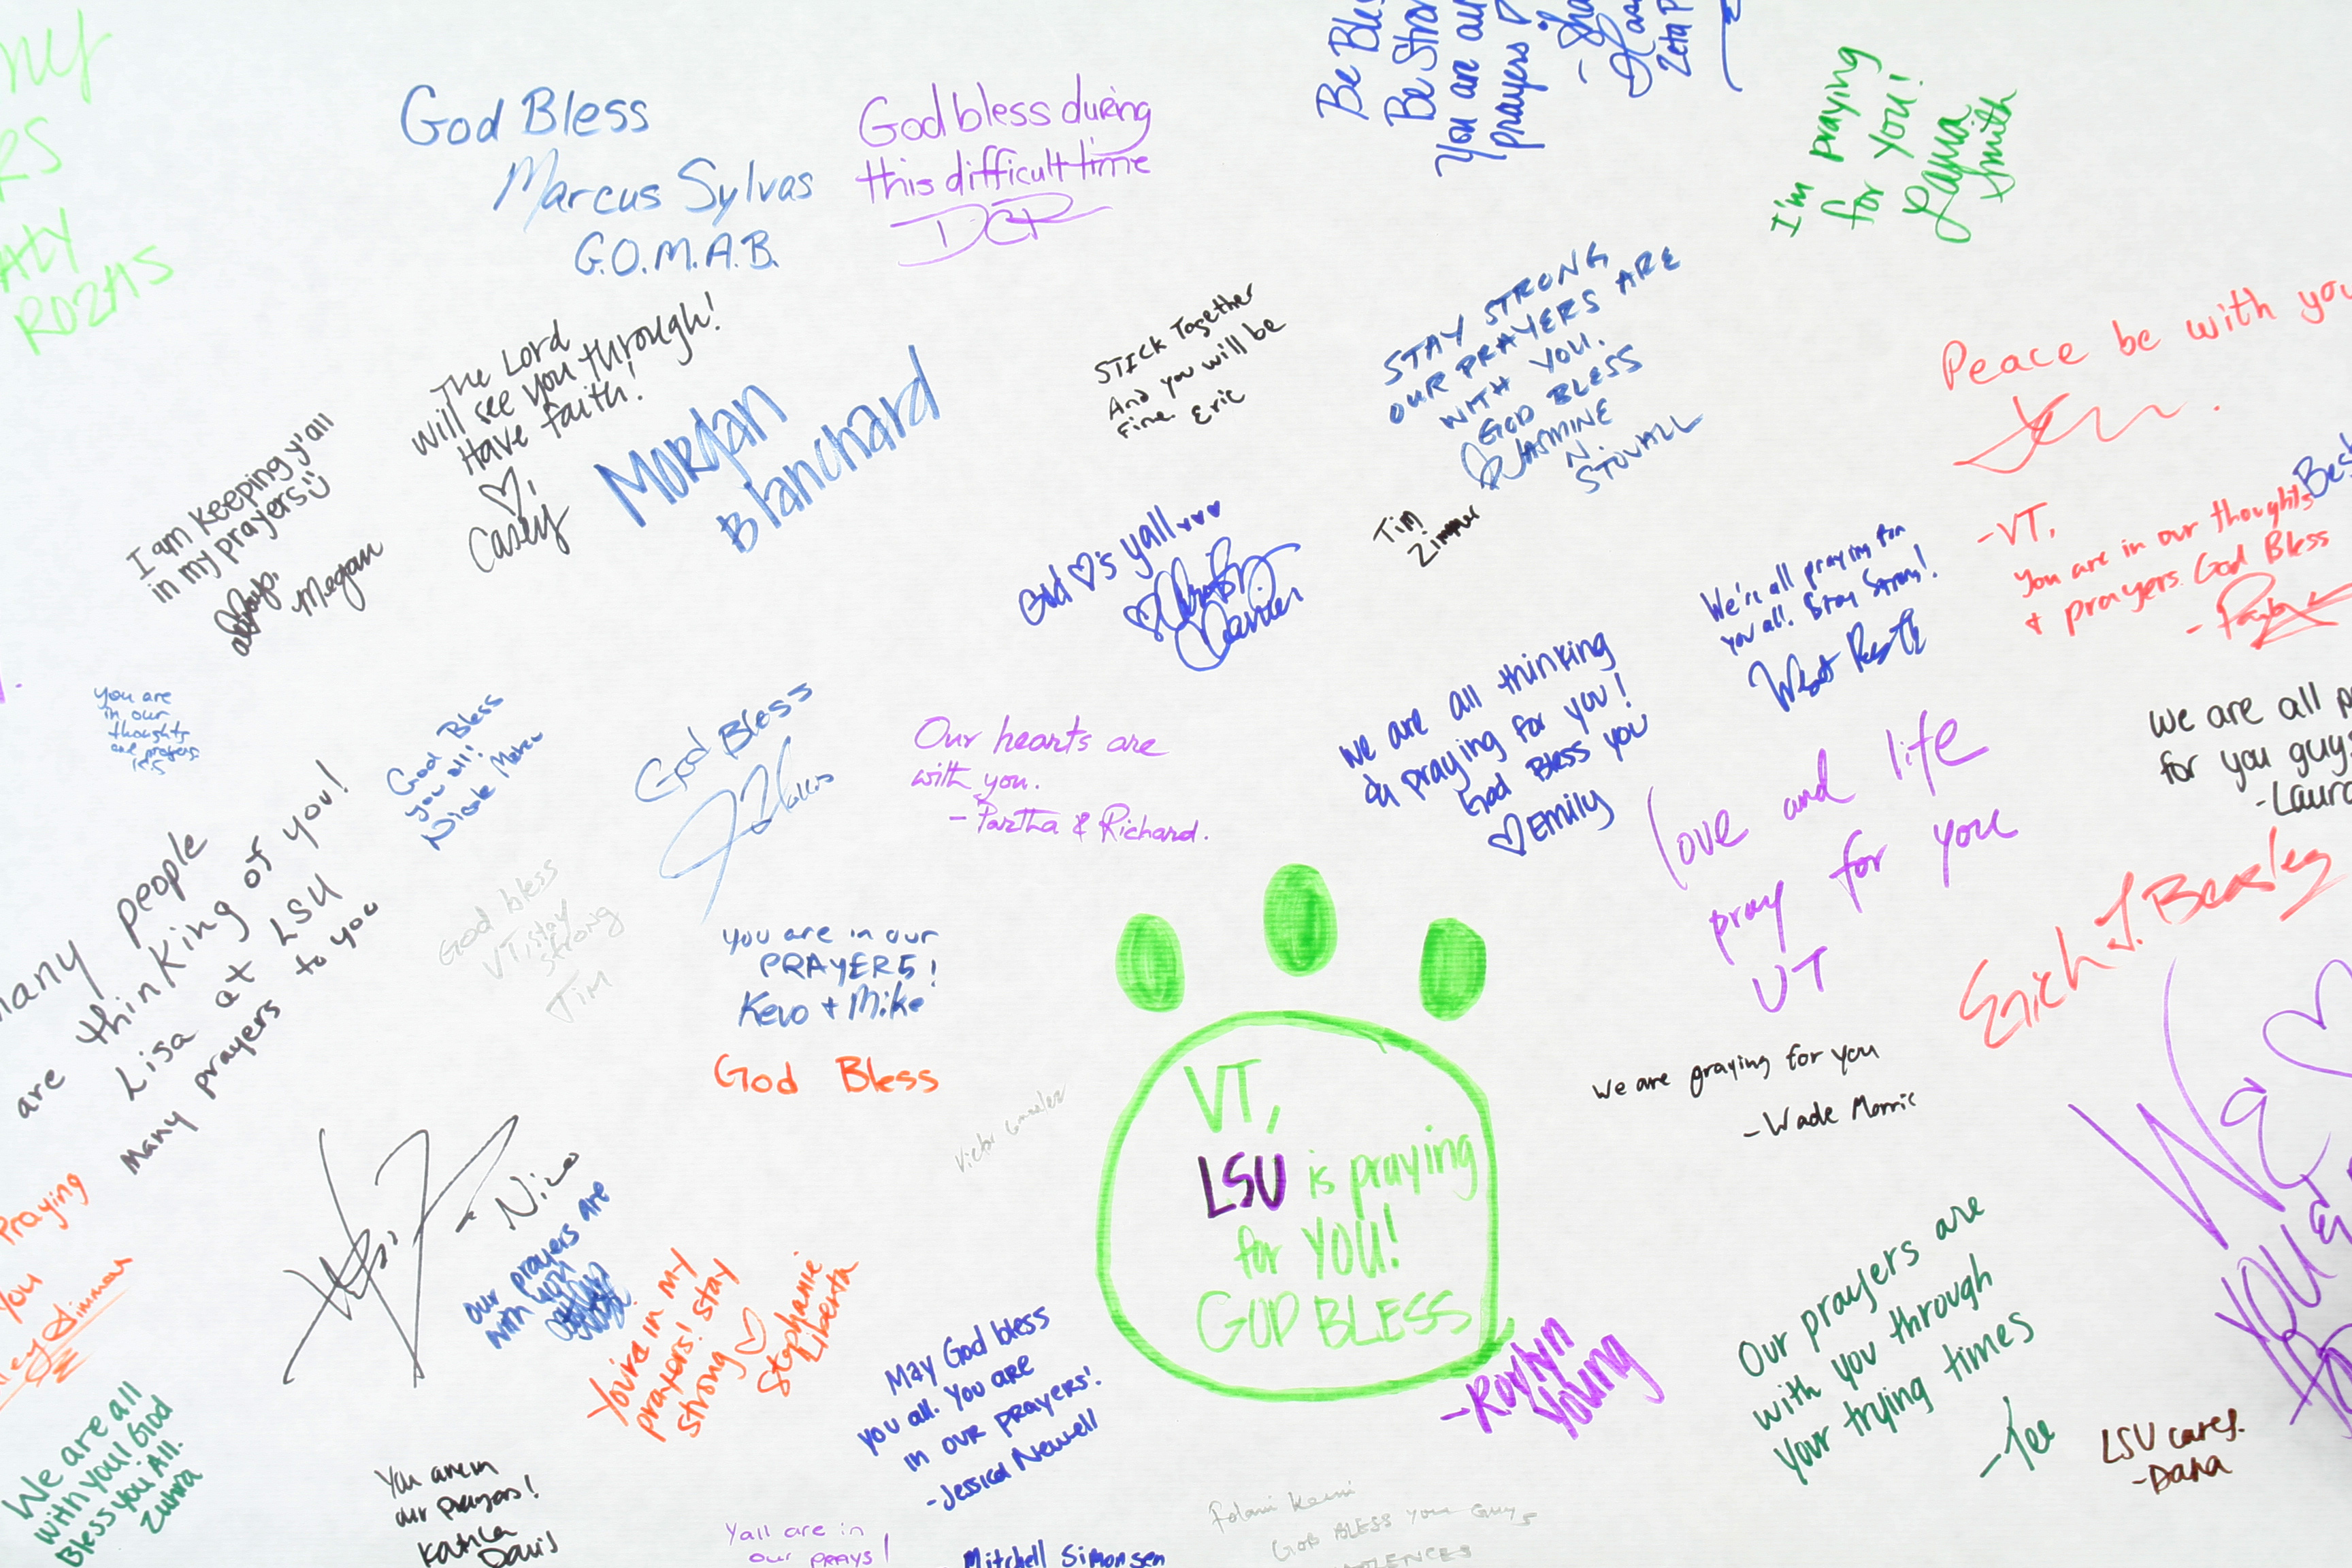 God Bless
Marcus Sylvas
G.O.M.A.B.
God bless during
this difficult time
DCR
Be
Be
You an
prayers
Zeta
I'm praying
for you!
Laura
Smith
ROZAS
The Lord
will see you through!
Have faith!
Casey
Morgan
Blanchard
STICK Together
And you will be
Fine Eric
STAY STRONG
OUR PRAYERS ARE
WITH YOU.
GOD BLESS
JASMINE
N.
STOVALL
Peace be with you
I am keeping y'all
in my prayers
always,
Megan
God ♡'s yall
Tim
Zimmer
We're all praying for
you all. Stay Strong!
Best
-VT,
You are in our thoughts
+ prayers. God Bless
you are
in our
thoughts
and prayers
God Bless
you all!
Nicole
God Bless
Our hearts are
with you.
- Partha & Richard.
We are all thinking
praying for you!
God Bless you
♡ Emily
love and life
pray for you
VT
We are all
for you guys
-Laura
many people
are thinking of you!
Lisa at LSU
Many prayers to you
God bless
VT, stay
strong
Tim
You are in our
PRAYERS!
Kevo + Mike
God Bless
Erich J. Beasley
We are praying for you
- Wade Morris
Victor Gonzalez
VT,
LSU is praying
for YOU!
GOD BLESS
- Roylyn
Young
WE ♡
YOU
Praying
You
- Nico
our prayers are
with you
You're in my
prayers! stay
strong ♡
Stephanie
Liberta
May God bless
you all. You are
in our prayers!
- Jessica Newell
Our prayers are
with you through
your trying times
- Tee
LSU cares.
- Dana
We are all
with you! God
Bless you All.
Zuhra
You are in
our prayers!
Davis
Yall are in
our prays!
Mitchell Simonsen
GOD BLESS you Guys